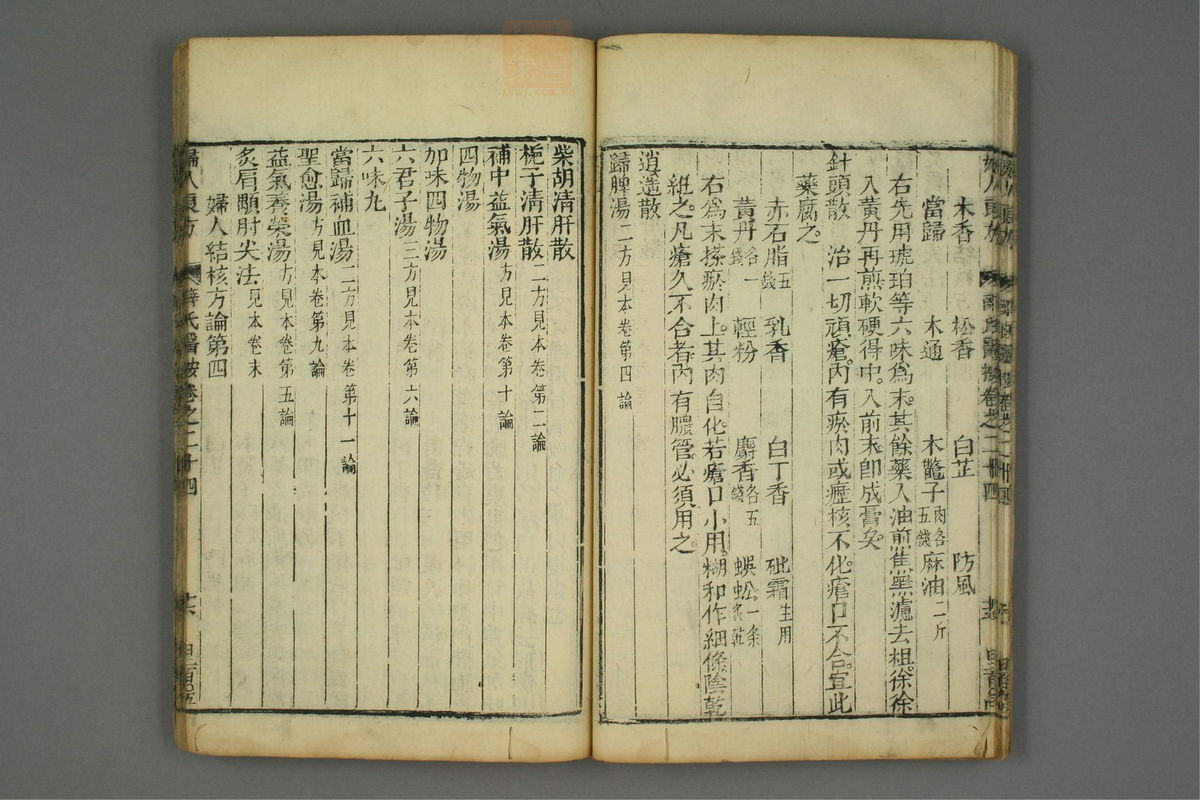 木香 松香 白芷 防風
當歸 木通 木鼈子肉各五錢 麻油二斤
右先用琥珀等六味爲末。其餘藥入油煎焦黑濾去柤。徐徐
入黄丹再煎軟硬得中。入前末卽成膏矣。
針頭散 治一切頑瘡。内有瘀肉或瘰核不化。瘡口不合。宜此
藥腐之。
赤石脂五錢 乳香 白丁香 砒霜生用
黄丹各一錢 輕粉 麝香各五錢 蜈蚣一条炙乾
右爲末。搽瘀肉上。其肉自化。若瘡口小用。糊和作細條陰乾
紝之。凡瘡久不合者。内有膿管。必須用之。
逍遥散
歸脾湯二方見本卷第四論
柴胡清肝散
梔子清肝散二方見本卷第二論
補中益氣湯方見本卷第十論
四物湯
加味四物湯
六君子湯三方見本卷第六論
六味丸
當歸補血湯二方見本卷第十一論
聖愈湯方見本卷第九論
益氣養榮湯方見本卷第五論
炙肩顒肘尖法見本卷末
婦人結核方論第四
婦人良方 薛氏醫按卷之二十四